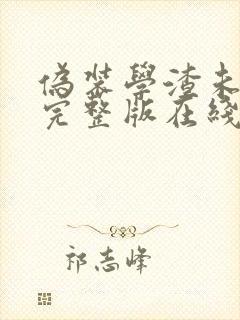 偽裝學渣未
完整版在綫
祁志峰